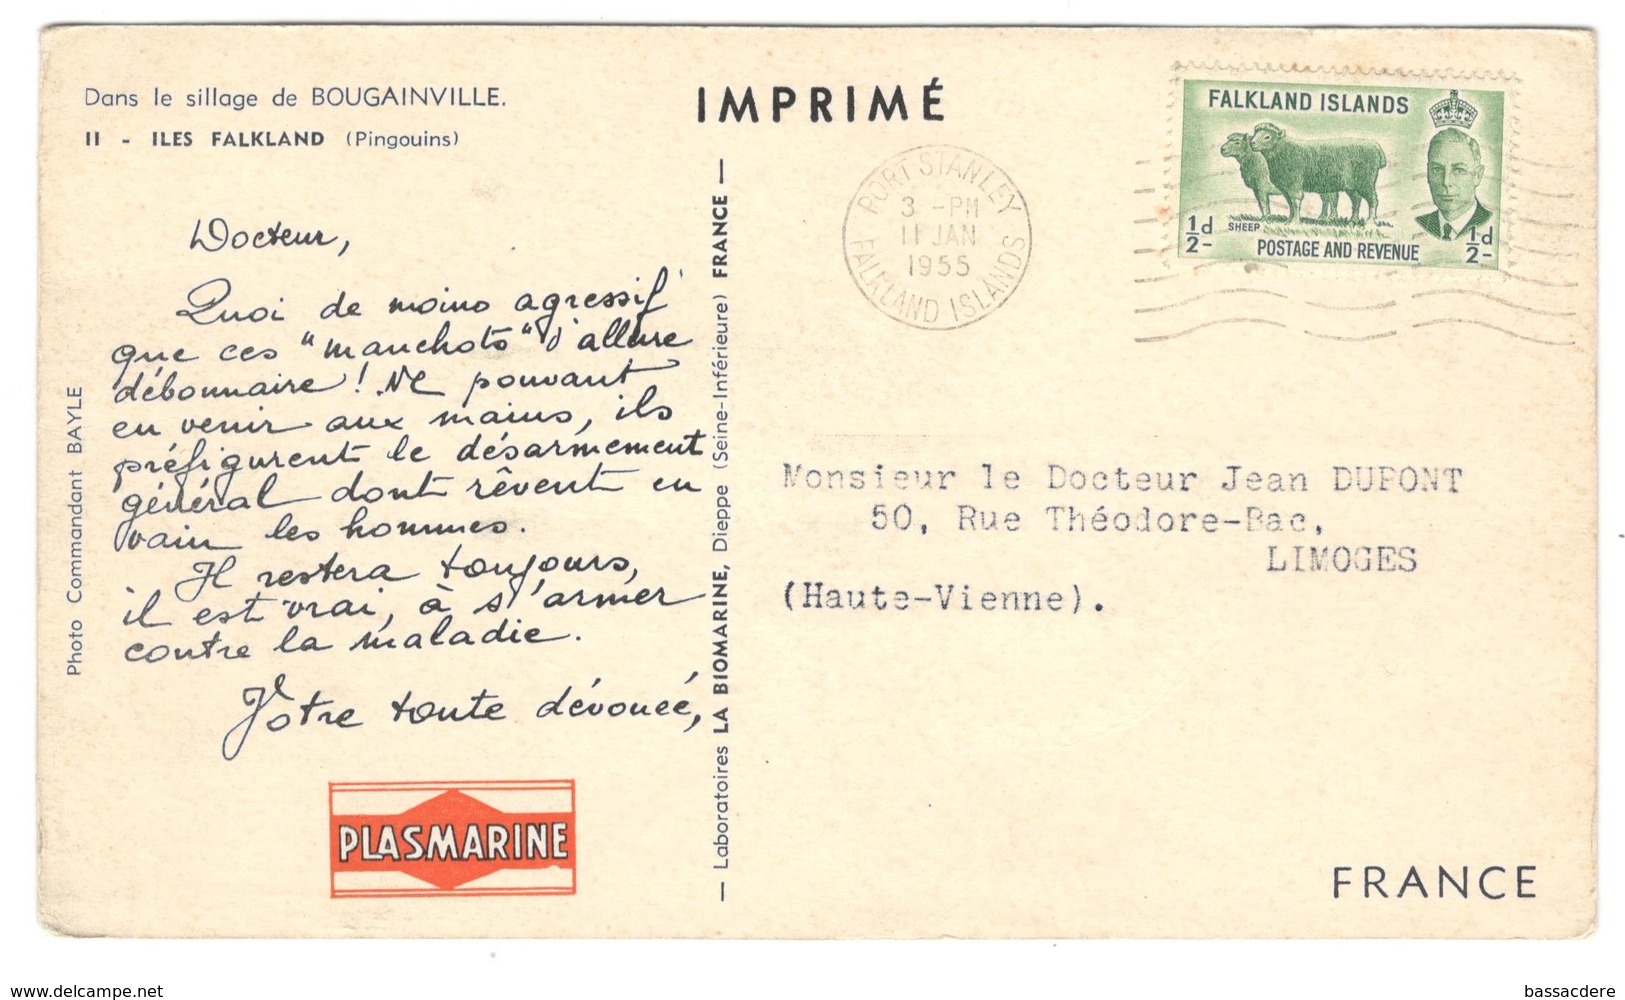 Dans le sillage de BOUGAINVILLE.
II - ILES FALKLAND (Pingouins)
Docteur,
Quoi de moins agressif
que ces "manchots" d'allure
débonnaire ! Ne pouvant
en venir aux mains, ils
préfigurent le désarmement
général dont rêvent en
vain les hommes.
Il restera toujours,
il est vrai, à s'armer
contre la maladie.
Votre toute dévouée,
PLASMARINE
Photo Commandant BAYLE
— Laboratoires LA BIOMARINE, Dieppe (Seine-Inférieure) FRANCE —
IMPRIMÉ
PORT STANLEY
3 - PM
11 JAN
1955
FALKLAND ISLANDS
FALKLAND ISLANDS
½d
SHEEP
POSTAGE AND REVENUE
½d
Monsieur le Docteur Jean DUPONT
50, Rue Théodore-Bac,
LIMOGES
(Haute-Vienne).
FRANCE
www.delcampe.net
bassacdere